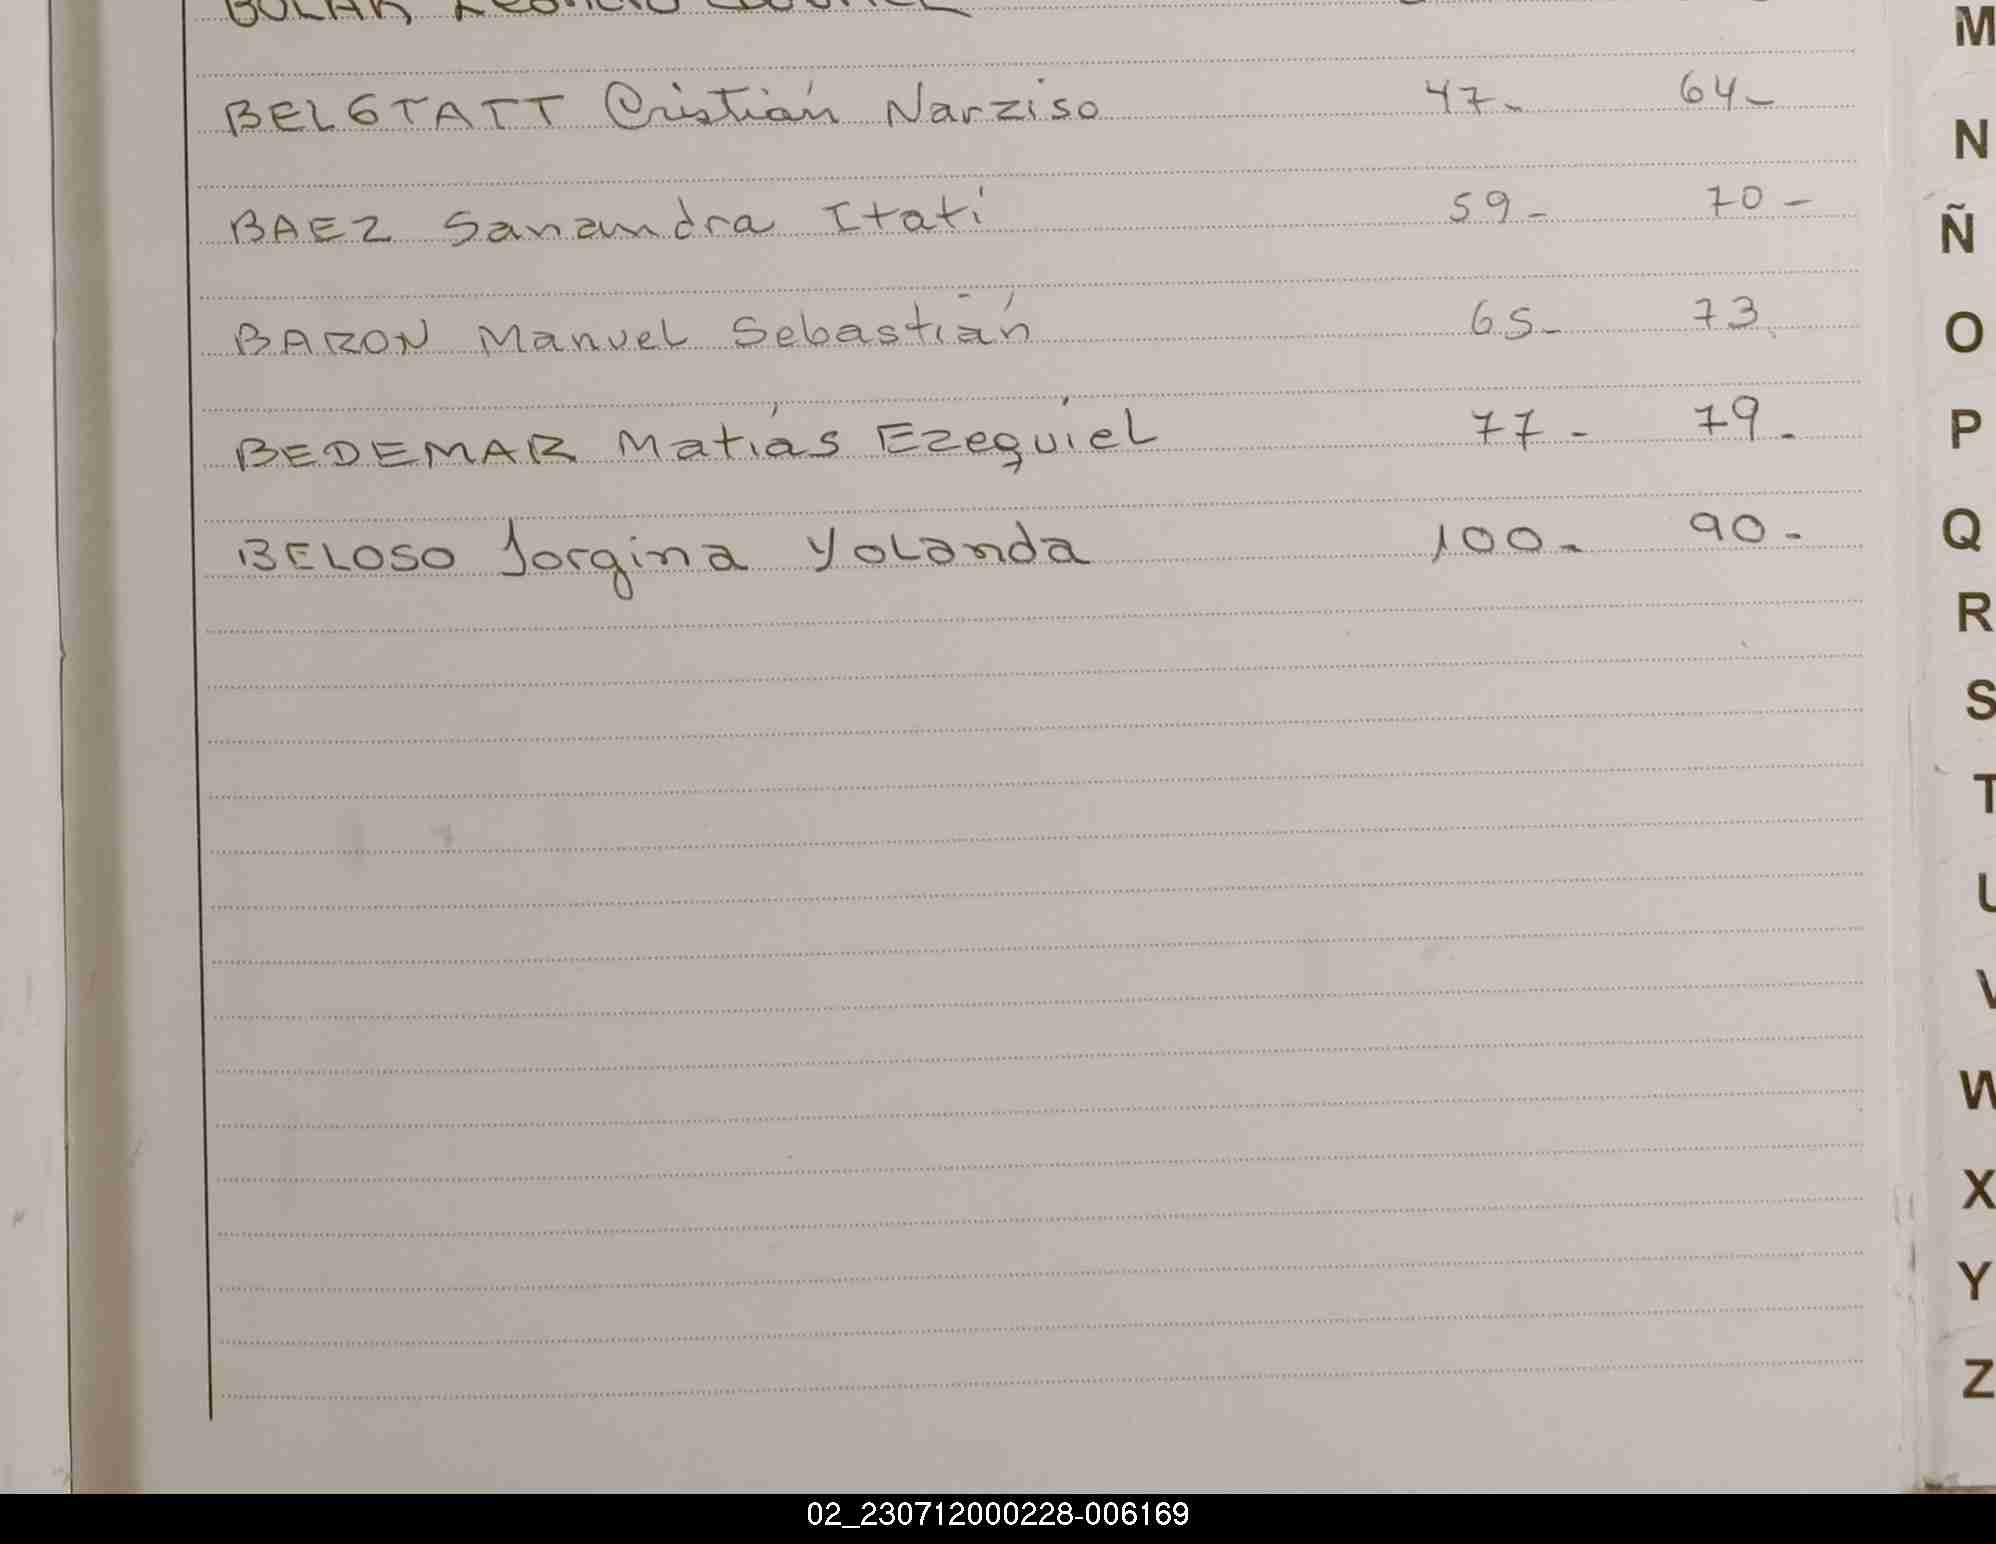 BELGTATT Cristián Narziso 47- 64-
BAEZ Sanandra Itatí 59- 70-
BARON Manuel Sebastián 65- 73
BEDEMAR Matías Ezequiel 77- 79-
BELOSO Jorgina Yolanda 100- 90-
M
N
Ñ
O
P
Q
R
S
T
U
V
W
X
Y
Z
02_230712000228-006169